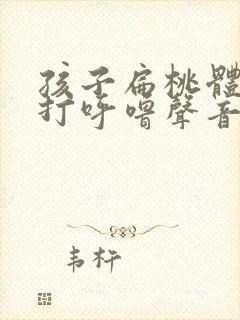 孩子扁桃體
打呼嚕聲音
韦杆